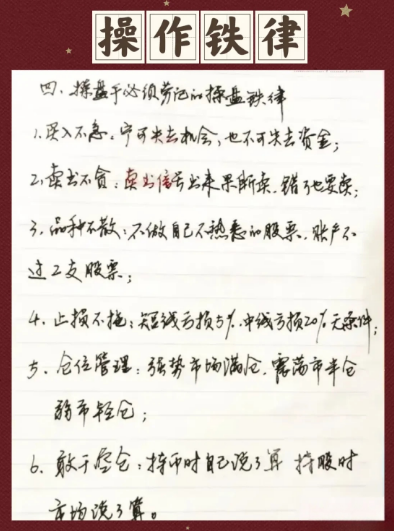 操作铁律
四、操盘手必须劳记的操盘铁律
1.买入不急：宁可失去机会，也不可失去资金；
2.卖出不贪：卖出信号出来果断卖，错了也要卖；
3、品种不散：不做自己不熟悉的股票，账户不
过2支股票；
4、止损不拖：短线亏损5%，中线亏损20%无条件；
5、仓位管理：强势市场满仓，震荡市半仓
弱市轻仓；
6、敢于空仓：持币时自己说了算 持股时
市场说了算。